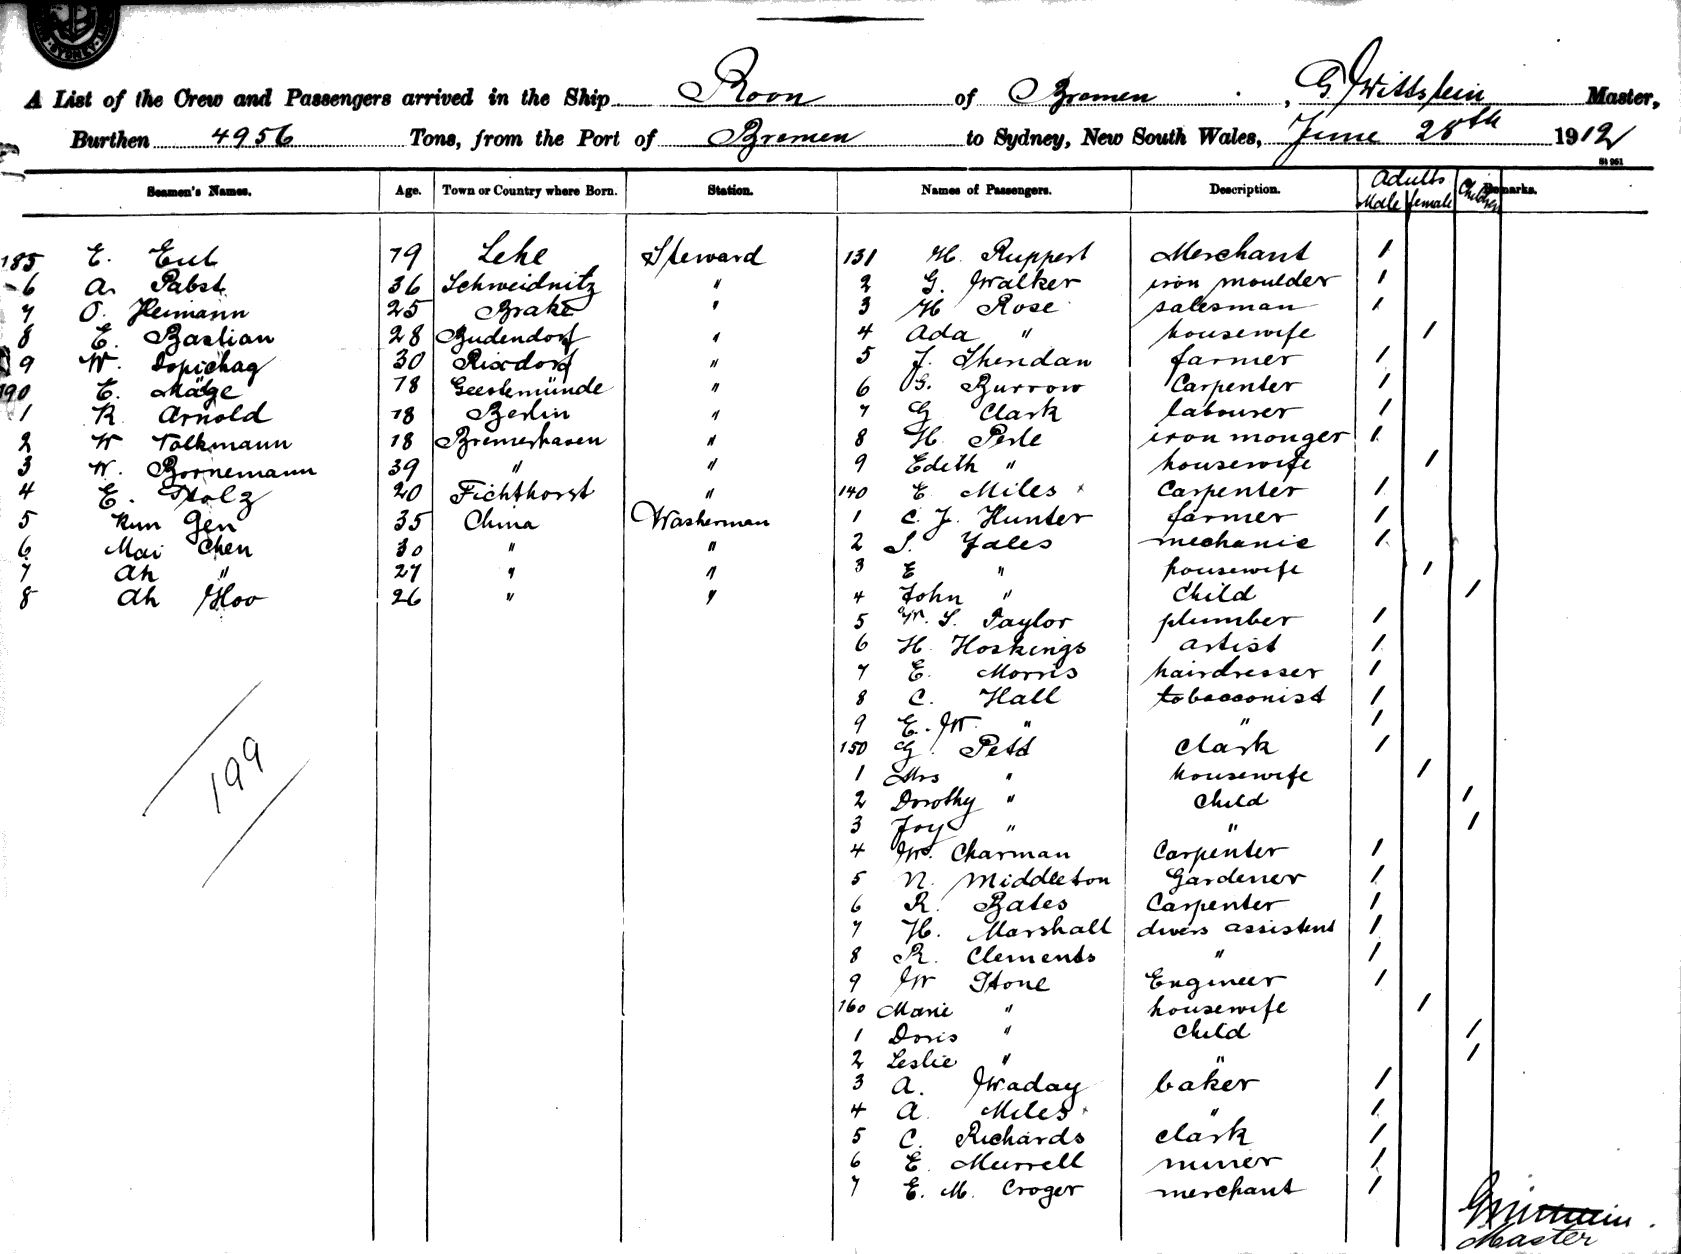 SYDNEY
A List of the Crew and Passengers arrived in the Ship Roon of Bremen, G. Wittstein Master,
Burthen 4956 Tons, from the Port of Bremen to Sydney, New South Wales, June 28th 1912
St 961
Seamen's Names. Age. Town or Country where Born. Station. Names of Passengers. Description. Adults Male female Children Remarks.
185 E. Eub 19 Lehe Steward 131 H. Ruppert Merchant 1
6 A. Pabst 36 Schweidnitz " 2 G. Walker iron moulder 1
7 O. Heimann 25 Brake " 3 H Rose salesman 1
8 E. Bastian 28 Budendorf " 4 Ada " housewife 1
9 W. 30 Rixdorf " 5 J. Sheridan farmer 1
190 E. Mäge 18 Geestemünde " 6 G. Burrow Carpenter 1
1 R. Arnold 18 Berlin " 7 G Clark labourer 1
2 W Volkmann 18 Bremerhaven " 8 H. Perle iron monger 1
3 W. Bornemann 39 " " 9 Edith " housewife 1
4 E. Stolz 20 Fichthorst " 140 E Miles Carpenter 1
5 Kun Gen 35 China Washerman 1 C. J. Hunter farmer 1
6 Mai Chen 30 " " 2 S. Yales mechanic 1
7 Ah " 27 " " 3 E " housewife 1
8 Ah Hoo 26 " " 4 John " Child 1
5 W. S. Taylor plumber 1
6 H. Hoskings artist 1
7 E. Morris hairdresser 1
8 C. Hall tobacconist 1
9 E. W. " " 1
150 G. Pett Clark 1
1 Mrs " housewife 1
2 Dorothy " Child 1
3 Joy " " 1
4 W. Charman Carpenter 1
5 N. Middleton Gardener 1
6 R. Bates Carpenter 1
7 H. Marshall divers assistent 1
8 R. Clements " 1
9 W Stone Engineer 1
160 Marie " housewife 1
1 Doris " Child 1
2 Leslie " " 1
3 A. Waday baker 1
4 A. Miles " 1
5 C. Richards clark 1
6 E. Murrell miner 1
7 E. M. Croger merchant 1
199
Master